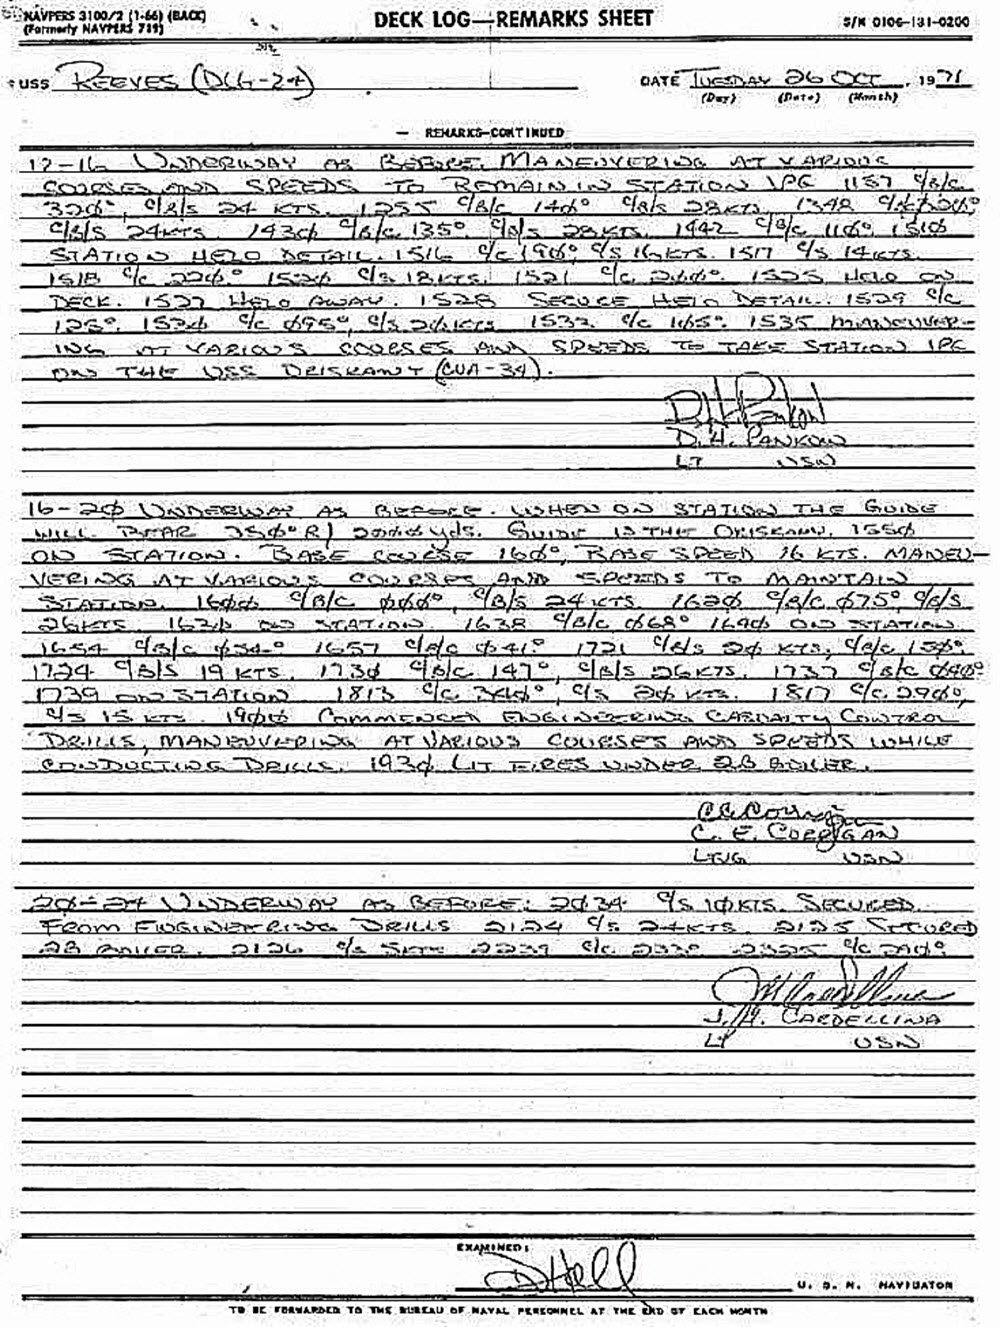 NAVPERS 3100/2 (1-66) (BACK)
(Formerly NAVPERS 719)
DECK LOG—REMARKS SHEET
S/N 0106-131-0200
USS REEVES (DLG-24)
DATE TUESDAY 26 OCT, 1971
(Day) (Date) (Month)
— REMARKS—CONTINUED
12-16 UNDERWAY AS BEFORE. MANEUVERING AT VARIOUS
COURSES AND SPEEDS TO REMAIN IN STATION 1PG 1157 C/B/C
320°, C/B/S 24 KTS. 1255 C/B/C 140° C/B/S 28 KTS. 1342
C/B/S 24KTS. 1430 C/B/C 135° C/B/S 28 KTS. 1442 C/B/C 110°. 1510
STATION HELO DETAIL. 1516 C/C 190° C/S 16KTS. 1517 C/S 14KTS.
1518 C/C 220°. 1520 C/S 18KTS. 1521 C/C 200°. 1525 HELO ON
DECK. 1527 HELO AWAY. 1528 SECURE HELO DETAIL. 1529 C/C
125°. 1530 C/C 095°, C/S 20KTS 1532 C/C 165°. 1535 MANEUVER-
ING AT VARIOUS COURSES AND SPEEDS TO TAKE STATION 1PG
ON THE USS ORISKANY (CVA-34).
D.H. PANKOW
LT USN
16-20 UNDERWAY AS BEFORE. WHEN ON STATION THE GUIDE
WILL BEAR 350°R) 2000 YDS. GUIDE IS THE ORISKANY. 1550
ON STATION. BASE COURSE 160°, BASE SPEED 16 KTS. MANEU-
VERING AT VARIOUS COURSES AND SPEEDS TO MAINTAIN
STATION. 1600 C/B/C 060°, C/B/S 24 KTS. 1620 C/B/C 075° C/B/S
26KTS. 1630 ON STATION. 1638 C/B/C 068° 1640 ON STATION
1654 C/B/C 054° 1657 C/B/C 041° 1721 C/B/S 20 KTS, C/B/C 150°.
1724 C/B/S 19 KTS. 1730 C/B/C 147°, C/B/S 26KTS. 1737 C/B/C 040°
1739 ON STATION 1813 C/C 300°, C/S 20 KTS. 1817 C/C 290°,
C/S 15 KTS. 1900 COMMENCED ENGINEERING CASUALTY CONTROL
DRILLS, MANEUVERING AT VARIOUS COURSES AND SPEEDS WHILE
CONDUCTING DRILLS. 1930 LIT FIRES UNDER 2B BOILER.
C. E. CORRIGAN
LTJG USN
20-24 UNDERWAY AS BEFORE. 2034 C/S 10KTS. SECURED
FROM ENGINEERING DRILLS 2124 C/S 24KTS. 2125 SECURED
2B BOILER. 2126 C/S 2239 C/C 2325 C/C 290°
J. M. CARDELLINA
LT USN
EXAMINED:
U. S. N. NAVIGATOR
TO BE FORWARDED TO THE BUREAU OF NAVAL PERSONNEL AT THE END OF EACH MONTH